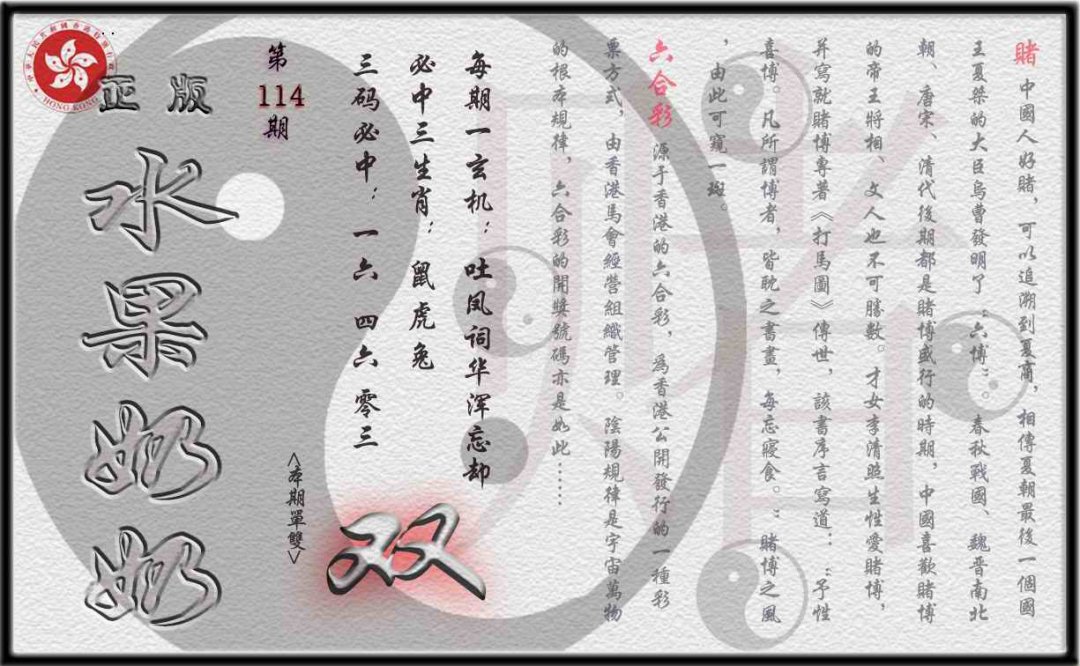 賭 中國人好賭，可以追溯到夏商，相傳夏朝最後一個國
王夏桀的大臣烏曹發明了“六博”。春秋戰國、魏晋南北
朝、唐宋、清代後期都是賭博盛行的時期，中國喜歡賭博
的帝王將相、文人也不可勝數。才女李清照生性愛賭博，
并寫就賭博專著《打馬圖》傳世，該書序言寫道：“予性
喜博。凡所謂博者，皆耽之書畫，每忘寢食。”賭博之風
，由此可窺一斑。
六合彩 源于香港的六合彩，爲香港公開發行的一種彩
票方式，由香港馬會經營組織管理。陰陽規律是宇宙萬物
的根本規律，六合彩的開獎號碼亦是如此……
每期一玄机：吐凤词华浑忘却
必中三生肖：鼠虎兔
三码必中：一六 四六 零三
第
114
期
<本期單雙>
双
正版
水果奶奶
HONG KONG